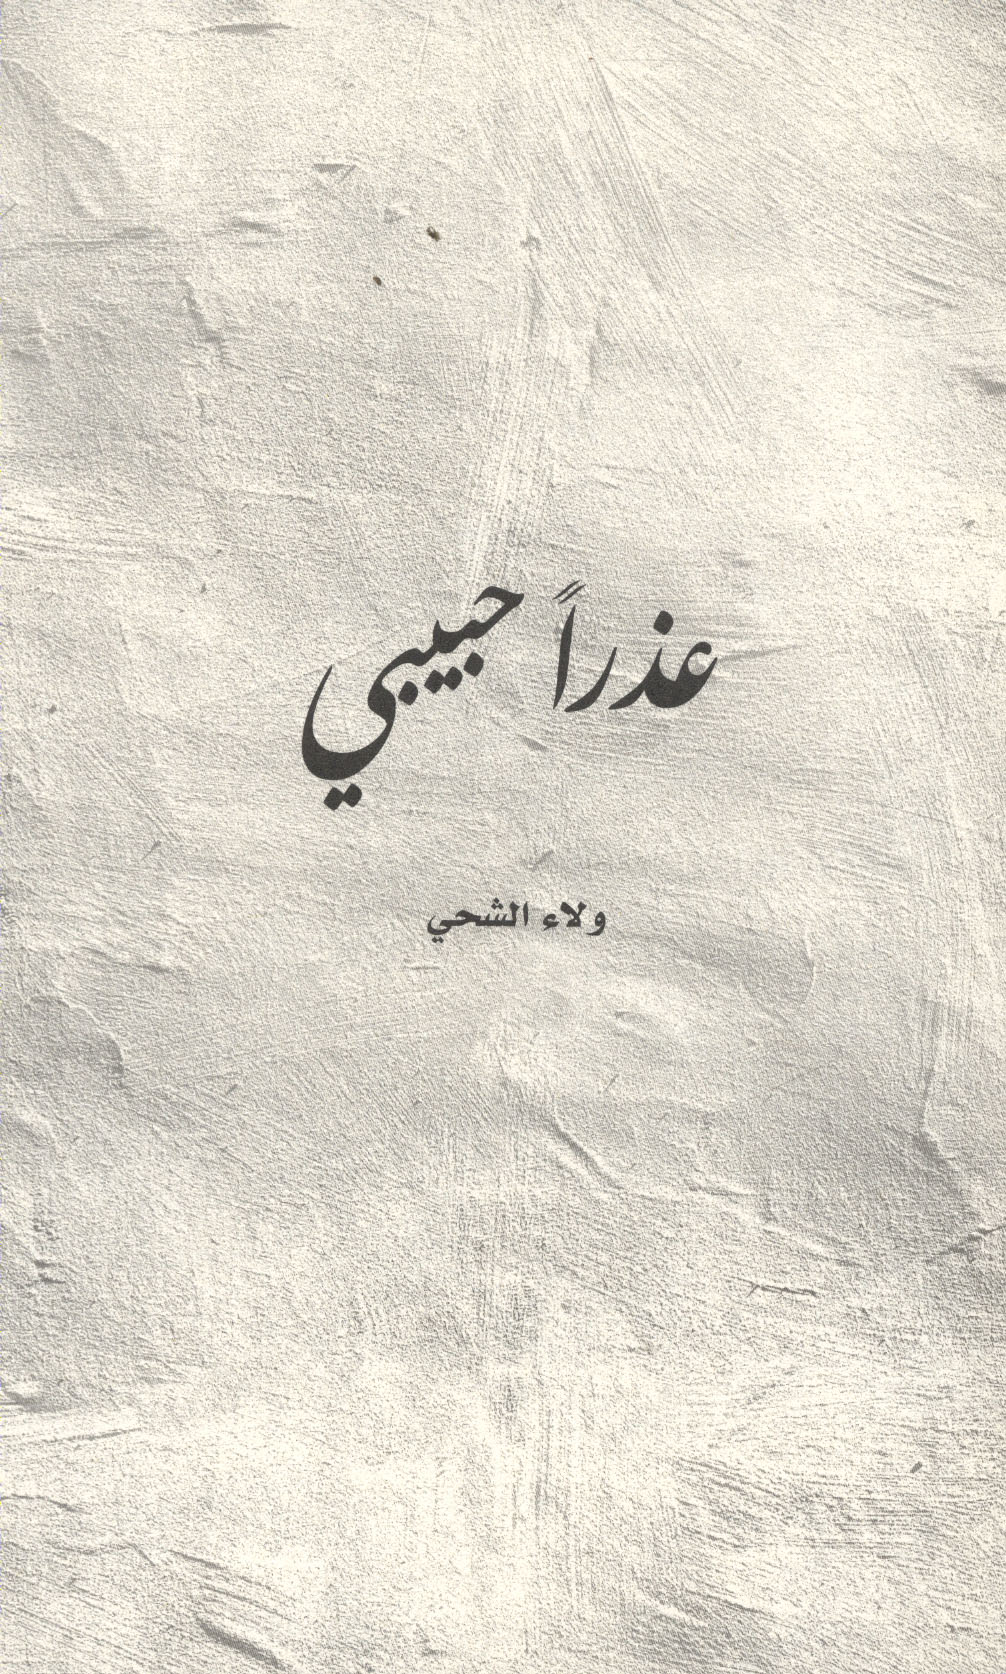 عذراً حبيبي
ولاء الشحي